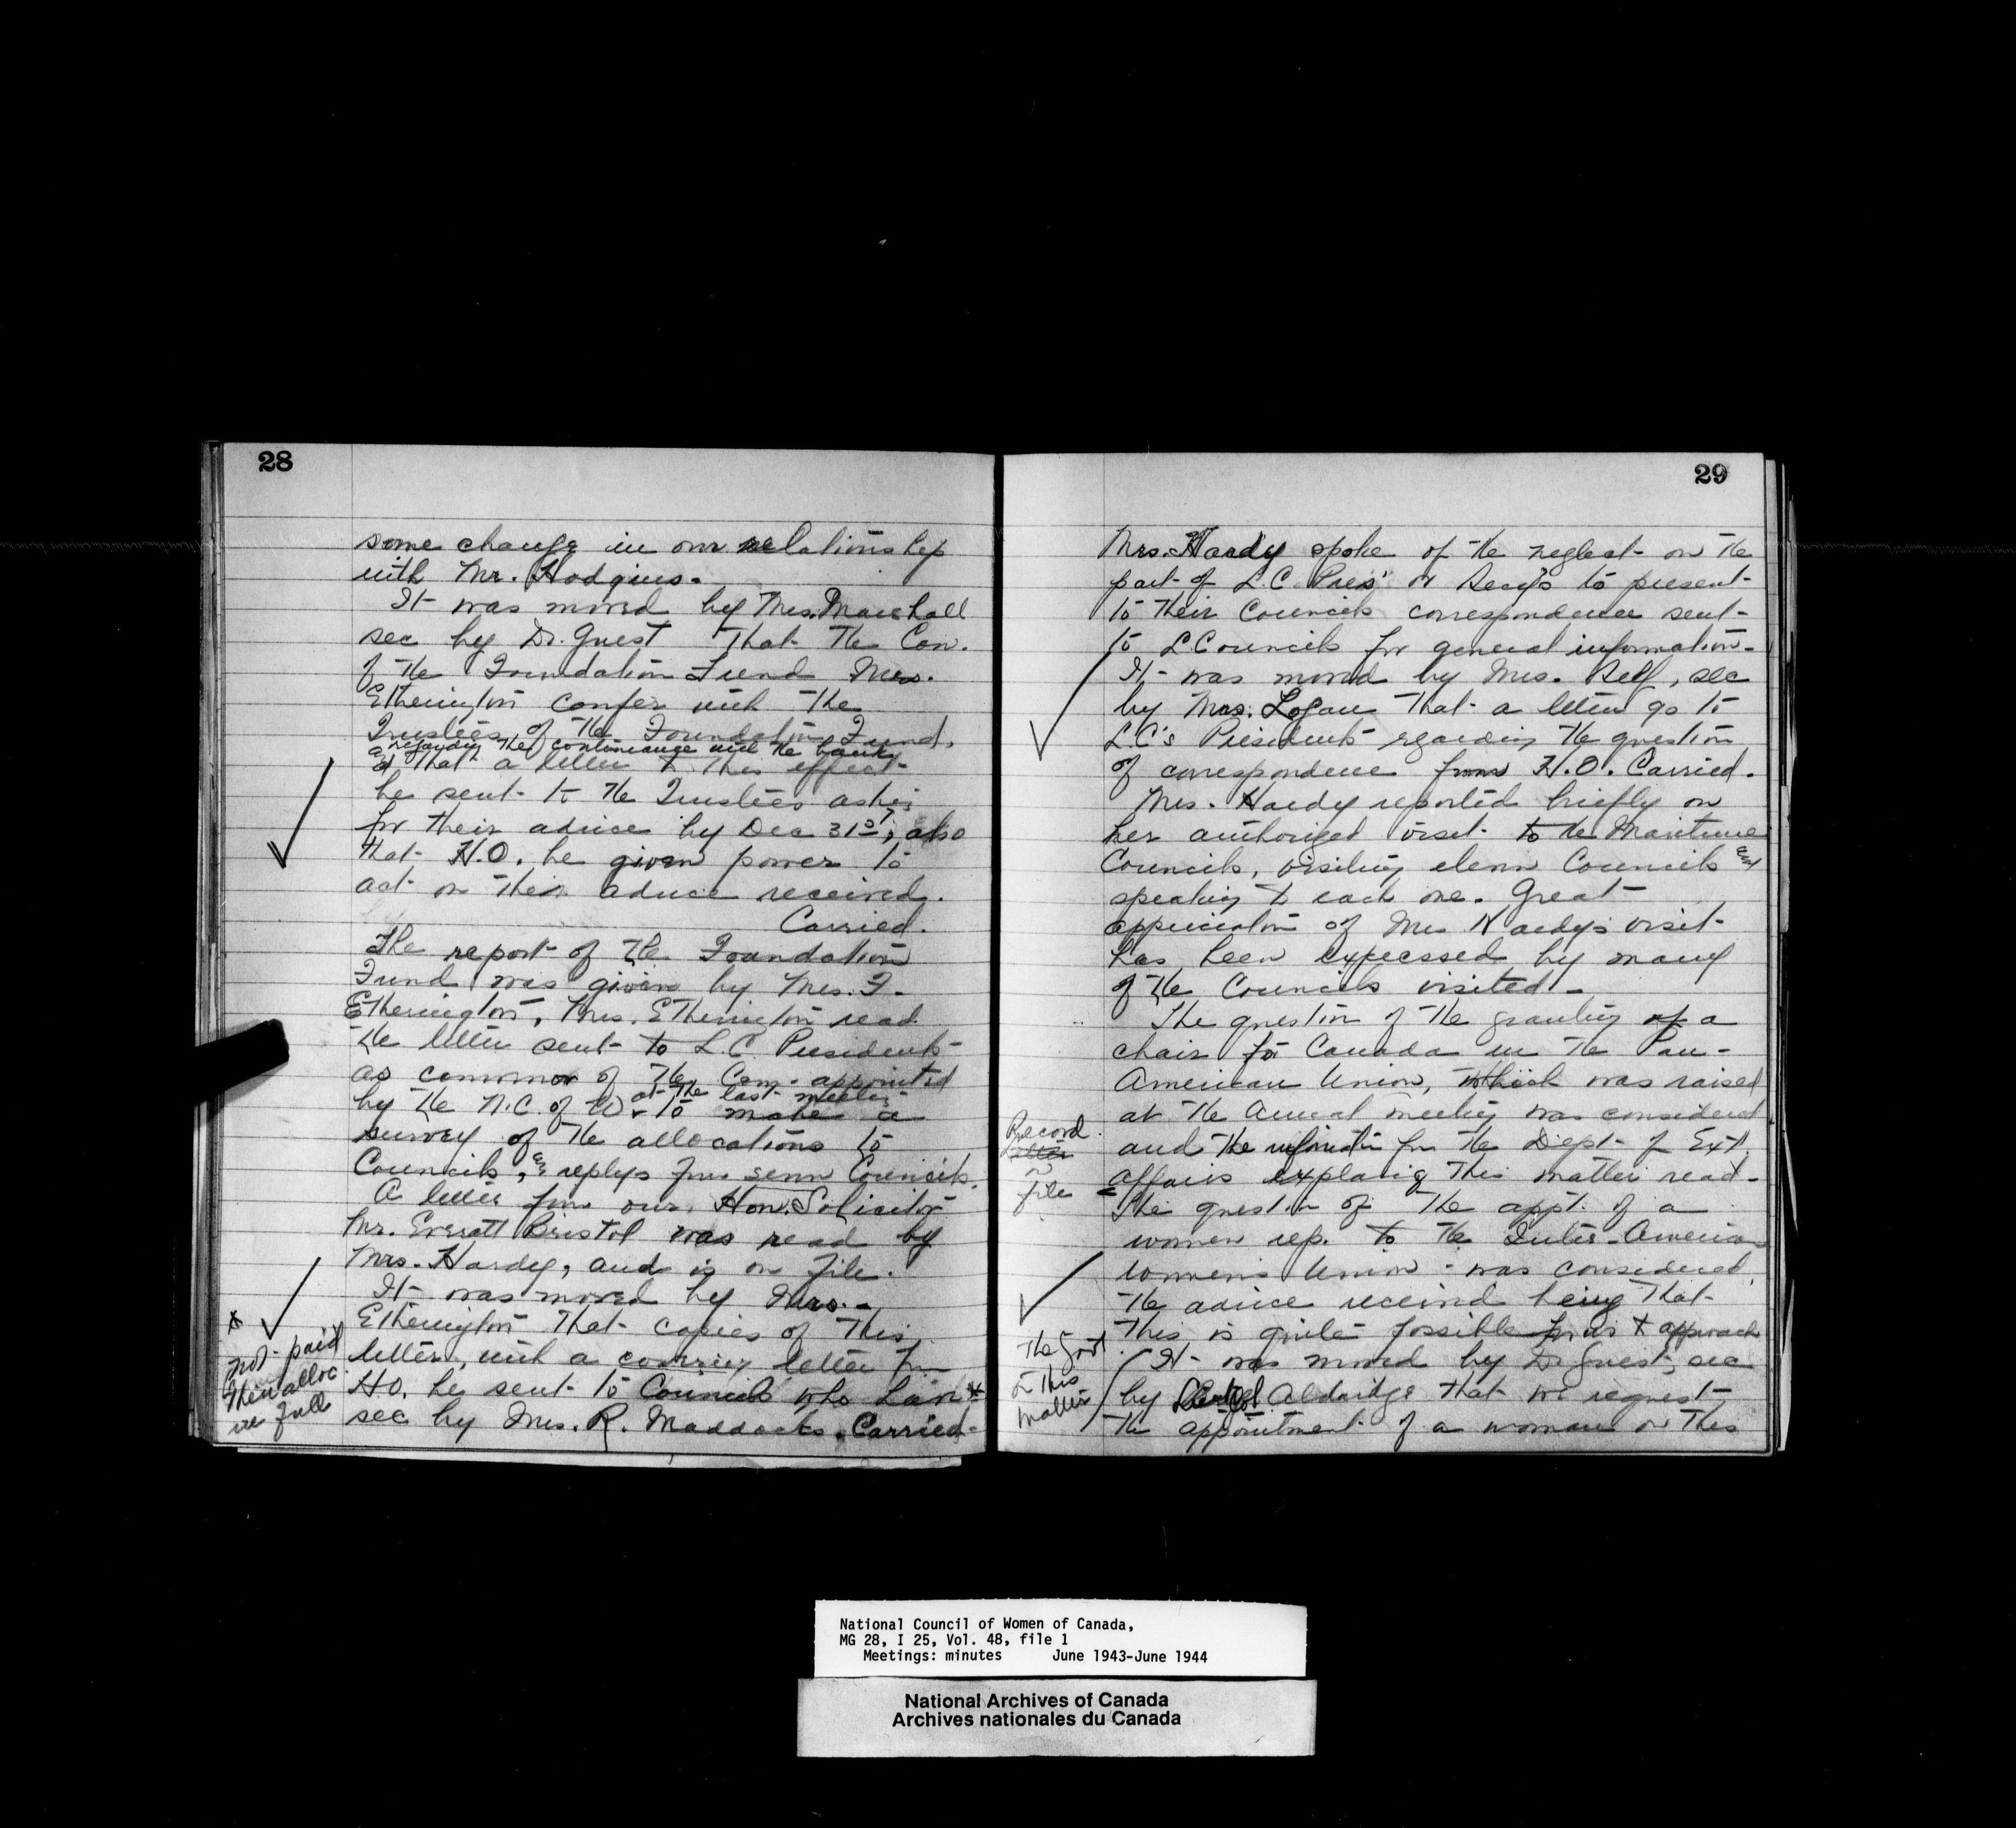 28
some change in our relationship
with Mr. Hodgins.
It was moved by Mrs. Marshall
sec by Dr. Guest that the Con.
of the Foundation Fund Mrs.
Etherington confer with the
Trustees of the Foundation Fund,
regarding the continuance with the bank
and that a letter to this effect
be sent to the Trustees asking
for their advice by Dec 31st, also
that H.O. be given power to
act on their advice received.
Carried.
The report of the Foundation
Fund was given by Mrs. F.
Etherington, Mrs. Etherington read
the letter sent to L.C. Presidents
as convenor of the Com. appointed
at the last meeting
by the N.C. of W. to make a
survey of the allocations to
Councils, & replys from seven Councils.
A letter from our Hon. Solicitor
Mr. Everatt Bristol was read by
Mrs. Hardy, and is on file.
It was moved by Mrs.
Etherington that copies of this
letter, with a covering letter from
H.O. be sent to Councils who have *
sec by Mrs. R. Maddocks. Carried.
* not paid
their alloc
in full
29
Mrs. Hardy spoke of the neglect on the
part of L.C. Pres' or Secy's to present
to their Councils correspondence sent
to L Councils for general information.
It was moved by Mrs. Self, sec
by Mrs. Logan that a letter go to
L.C's Presidents regarding the question
of correspondence from H.O. Carried.
Mrs. Hardy reported briefly on
her authorized visit to the Maritime
Councils, visiting eleven Councils and
speaking to each one. Great
appreciation of Mrs Hardy's visit
has been expressed by many
of the Councils visited.
The question of the granting of a
chair for Canada in the Pan-
American Union, which was raised
at the Annual meeting was considered
and the information from the Dept. of Ext.
Affairs explaing this matter read.
Record
letter
on
file
The question of the appt. of a
women rep. to the Inter-American
Womens Union - was considered
the advice received being that
this is quite possible for us to approach
the Govt.
in this
matter
It was moved by Dr Guest, sec
by Aldridge that we request
the appointment of a woman on this
National Council of Women of Canada,
MG 28, I 25, Vol. 48, file 1
Meetings: minutes June 1943-June 1944
National Archives of Canada
Archives nationales du Canada